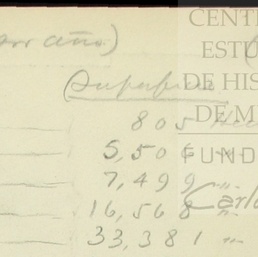 por año.)
(Superficie
805
5,506 "
7,499 "
16,568 "
33,381 "
CENT
ESTU
DE HIS
DE M
FUND
Carlo